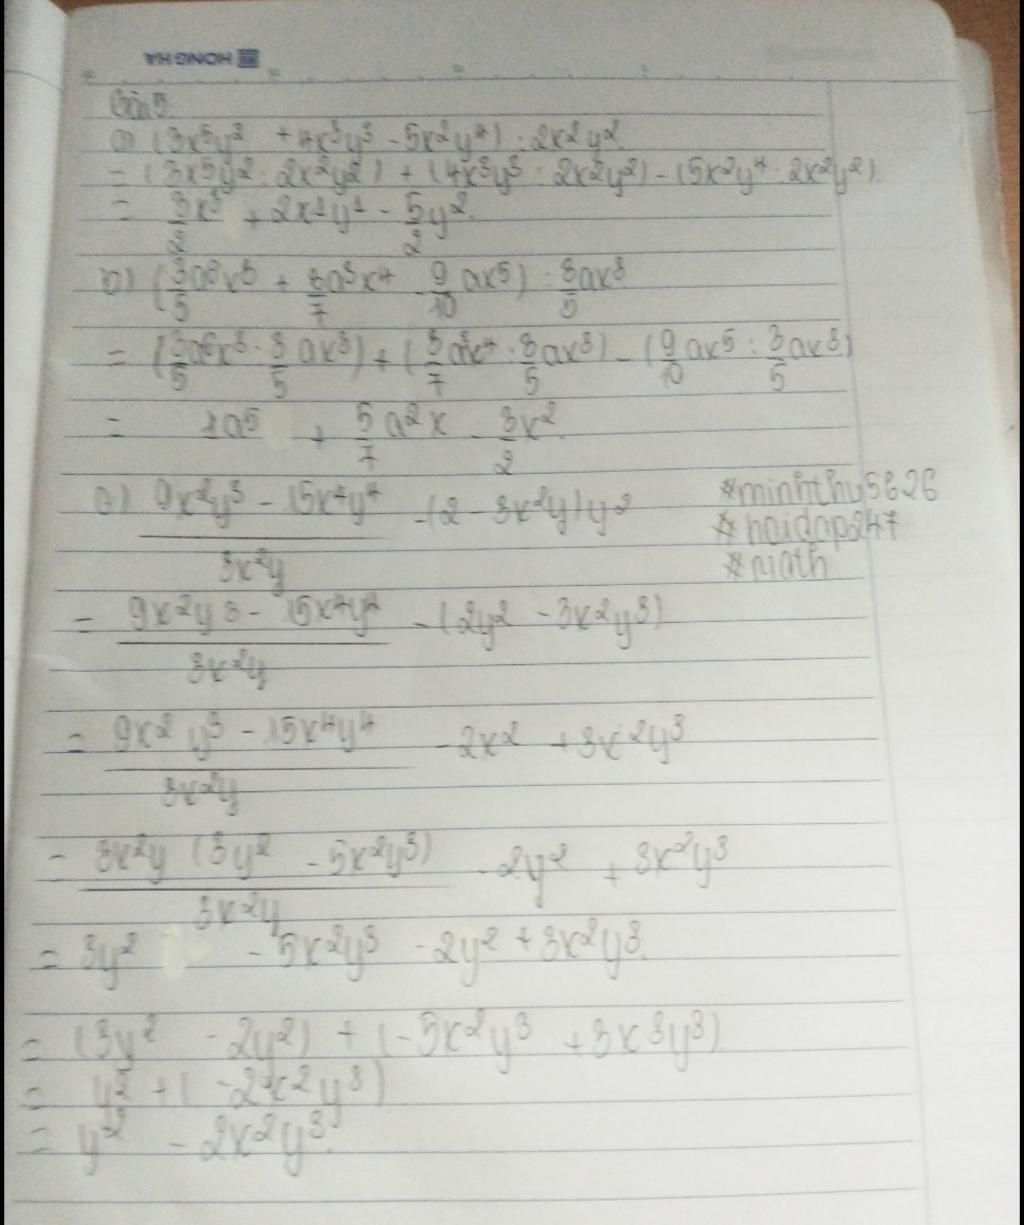 HONG HA
Bài 5
a) (3x⁵y² + 4x³y³ - 5x²y⁴) : 2x²y²
= (3x⁵y² : 2x²y²) + (4x³y³ : 2x²y²) - (5x²y⁴ : 2x²y²).
= 3x³/2 + 2x¹y¹ - 5/2 y².
b) (3/5 a⁶x³ + 3/7 a³x⁴ - 9/10 ax⁵) : 3/5 ax³
= (3/5 a⁶x³ : 3/5 ax³) + (3/7 a³x⁴ : 3/5 ax³) - (9/10 ax⁵ : 3/5 ax³)
= 1a⁵ + 5/7 a²x - 3/2 x².
c) (9x²y³ - 15x⁴y⁴)/(3x²y) - (2 - 3x²y)y²
#minhthu5626
#hoidap247
#math
= (9x²y³ - 15x⁴y⁴)/(3x²y) - (2y² - 3x²y³)
= (9x²y³ - 15x⁴y⁴)/(3x²y) - 2x² + 3x²y³
= 3x²y (3y² - 5x²y³)/(3x²y) - 2y² + 3x²y³
= 3y² - 5x²y³ - 2y² + 3x²y³.
= (3y² - 2y²) + (-5x²y³ + 3x³y³)
= y² + (-2x²y³)
= y² - 2x²y³.